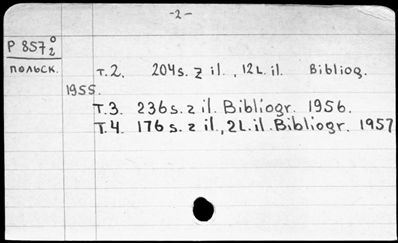 -2-
P 857 0/2
польск.
т.2. 204s. z il., 12L. il. Bibliog.
1955.
т.3. 236s. z il. Bibliogr. 1956.
т.4. 176 s. z il., 2L. il. Bibliogr. 1957